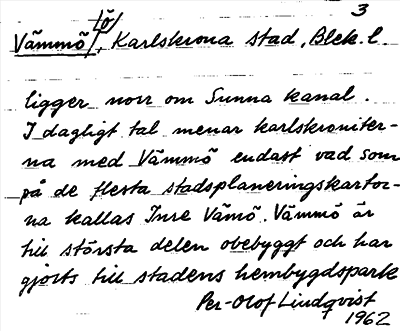 3
Vämmö/ö/, Karlskrona stad, Blek. l.
ligger norr om Sunna kanal.
I dagligt tal menar karlskroniter-
na med Vämmö endast vad som
på de flesta stadsplaneringskartor-
na kallas Inre Vämö. Vämmö är
till största delen obebyggt och har
gjorts till stadens hembygdspark
Per-Olof Lindqvist
1962